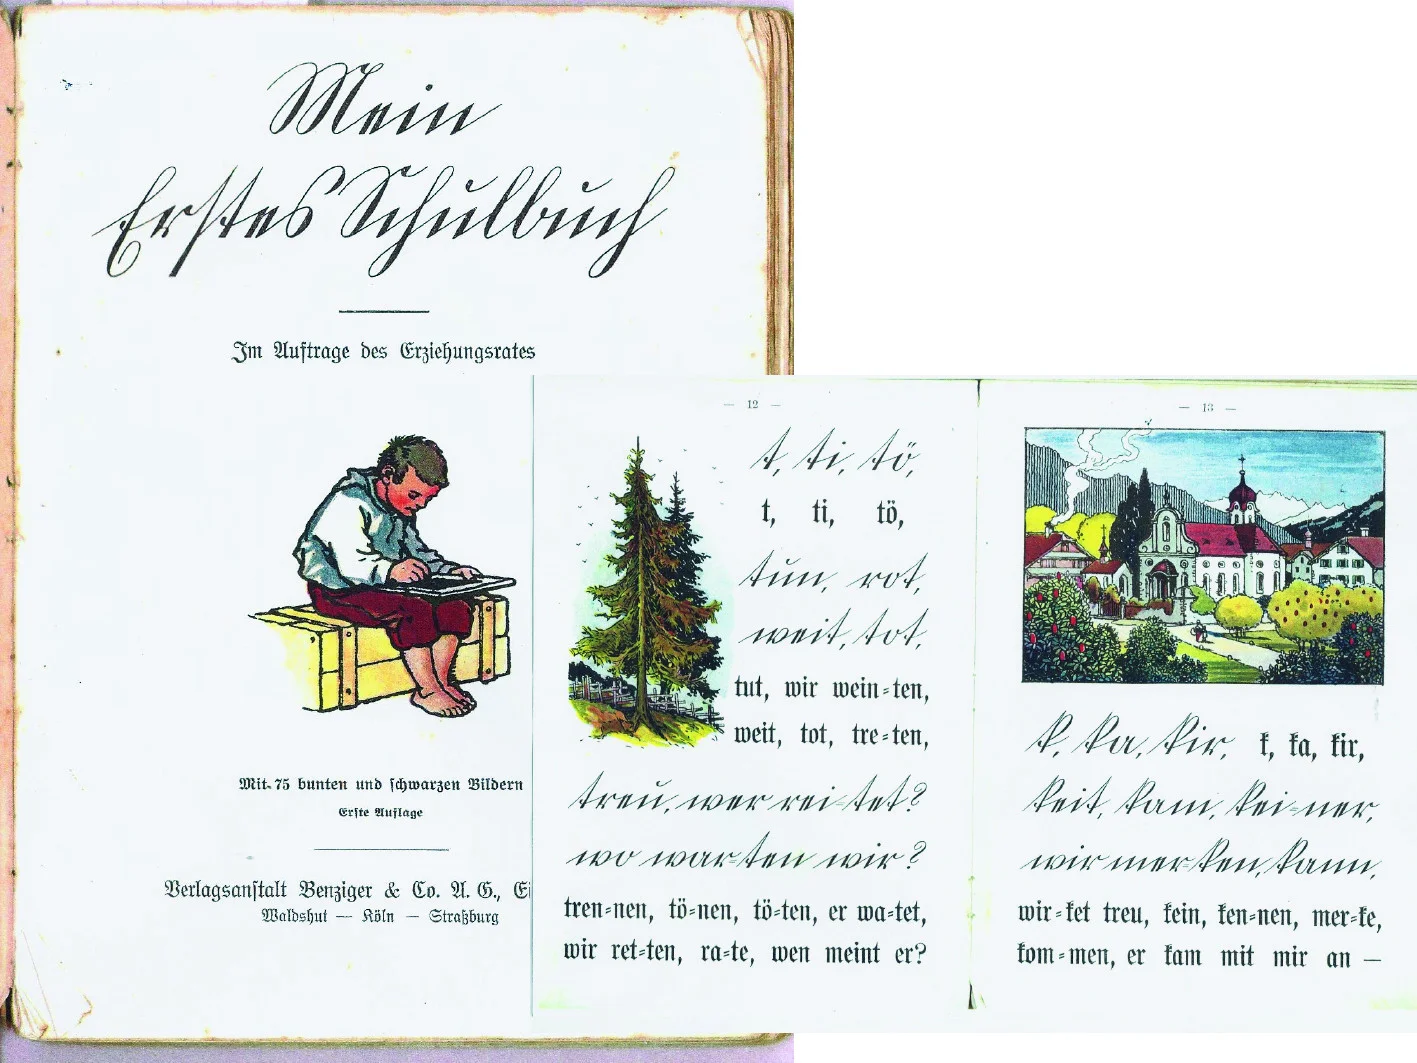 Mein
Erstes Schulbuch
Im Auftrage des Erziehungsrates
Mit 75 bunten und schwarzen Bildern
Erste Auflage
Verlagsanstalt Benziger & Co. A. G., Ei
Waldshut — Köln — Straßburg
— 12 —
t, ti, tö,
t, ti, tö,
tun, rot,
weit, tot,
tut, wir wein=ten,
weit, tot, tre=ten,
treu, wer rei=tet?
wo war=ten wir?
tren=nen, tö=nen, tö=ten, er wa=tet,
wir ret=ten, ra=te, wen meint er?
— 13 —
k, ka, kir, k, ka, kir,
keit, kam, kei=ner,
wir mer=ken, kann,
wir=ket treu, kein, ken=nen, mer=ke,
kom=men, er kam mit mir an —